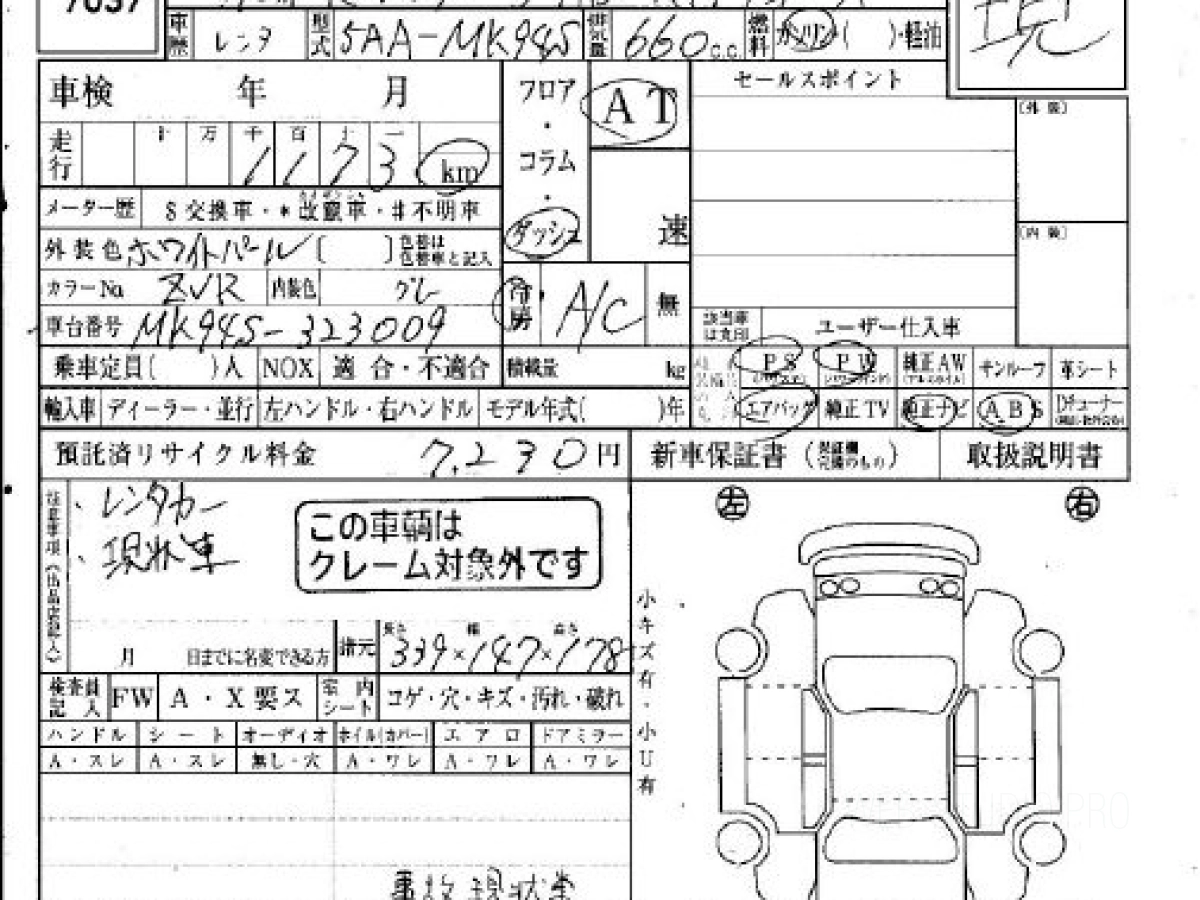 7037
車歴 レンタ 型式 5AA-MK94S 排気量 660 c.c. 燃料 ガソリン( )・軽油
現
車検 年 月
フロア・コラム・ダッシュ
AT
速
セールスポイント
(外装)
(内装)
走行 十 万 千 百 十 一
1 1 7 3 km
メーター歴 $交換車・*改竄車・#不明車
外装色 ホワイトパール [ ] 色替は色替車と記入
カラーNo. ZVR 内装色 グレー
冷房 A/C 無
車台番号 MK94S-323009
該当車は○印 ユーザー仕入車
乗車定員( )人 NOX 適合・不適合 積載量 kg
PS (パワステ) PW (パワーウインド) 純正AW (アルミホイル) サンルーフ 革シート
輸入車 ディーラー・並行 左ハンドル・右ハンドル モデル年式( )年
エアバッグ 純正TV 純正ナビ ABS
預託済リサイクル料金 7,230円 新車保証書 取扱説明書
左 右
注意事項(出品店記入)
、レンタカー
、現状車
この車輌は
クレーム対象外です
月 日までに名変できる方
諸元 長さ 幅 高さ
339×147×178
検査員記入 FW A・X要ス 室内シート コゲ・穴・キズ・汚れ・破れ
ハンドル シート オーディオ ホイル(カバー) エアロ ドアミラー
A・スレ A・スレ 無し・穴 A・ワレ A・ワレ A・ワレ
小キズ有・小U有
事故現状車